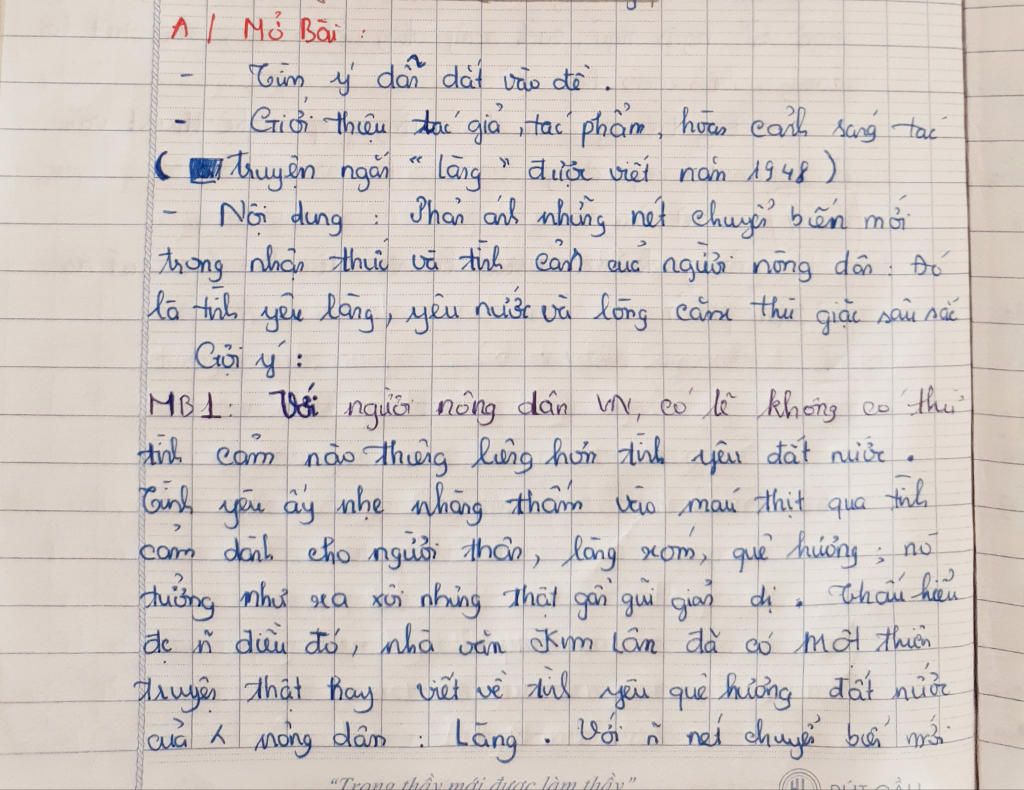 A / Mở Bài :
- Tìm ý dẫn dắt vào đề .
- Giới thiệu tác giả , tác phẩm , hoàn cảnh sáng tác
( truyện ngắn " làng " được viết năm 1948 )
- Nội dung : Phản ánh những nét chuyển biến mới
trong nhận thức và tình cảm của người nông dân : Đó
là tình yêu làng , yêu nước và lòng căm thù giặc sâu sắc
Gợi ý :
MB1 : Với người nông dân VN , có lẽ không có thứ
tình cảm nào thiêng liêng hơn tình yêu đất nước .
Tình yêu ấy nhẹ nhàng thấm vào máu thịt qua tình
cảm dành cho người thân , làng xóm , quê hương ; nó
tưởng như xa xôi nhưng thật gần gũi giản dị . Thấu hiểu
đc ~n điều đó , nhà văn Kim Lân đã có một thiên
truyện thật hay viết về tình yêu quê hương đất nước
của nông dân : Làng . Với ~n nét chuyển biến mới
"Trọng thầy mới được làm thầy"